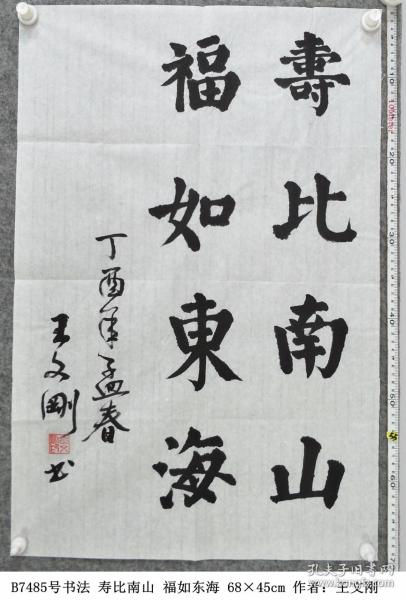 壽比南山
福如東海
丁酉年孟春
王文剛
书
B7485号书法 寿比南山 福如东海 68×45cm 作者：王文刚
孔夫子旧书网